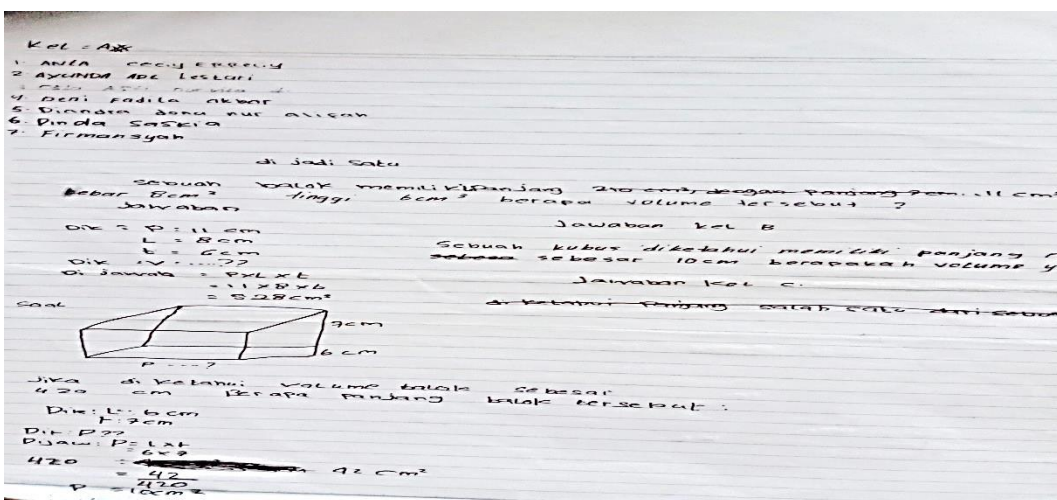 Kel = A
1. ANLA
2 AYUNDA ADE Lestari
4 Deni Fadila akbar
5. Diandra dona nur alisah
6. Dinda Saskia
7. Firmansyah
di jadi satu
sebuah balok memiliki panjang 210 cm², dengan panjang 7cm...11 cm
lebar 8cm² tinggi 6cm² berapa volume tersebut ?
Jawaban
Dik = P = 11 cm
L = 8cm
t = 6cm
Dik v.....??
Di jawab = PxLxt
= 11x8x6
= 528cm²
Jawaban kel B
Sebuah kubus diketahui memiliki panjang r
sebesar 10cm berapakah volume
Jawaban kel c.
di ketahui panjang salah satu dari
soal
7cm
6 cm
P ....?
Jika di ketahui volume balok sebesar
420 cm Berapa panjang balok tersebut :
Dik: L: 6cm
t: 7cm
Dit P??
Dijaw: P = Lxt
6x7
420 = 42 cm²
= 42
420
P = 10cm²